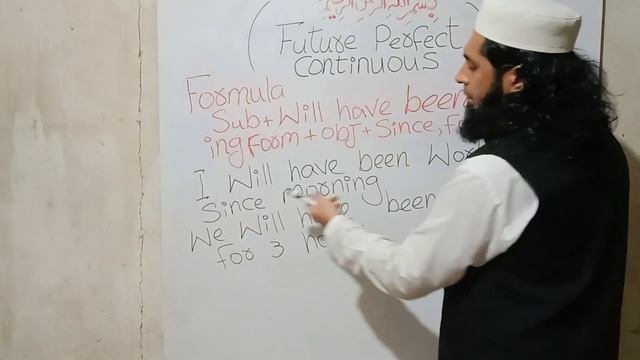 بسم الله الرحمن الرحيم
Future Perfect
Continuous
Formula
Sub+Will have been
ing Form + obj + Since,
I Will have been
Since morning
We Will been
for 3